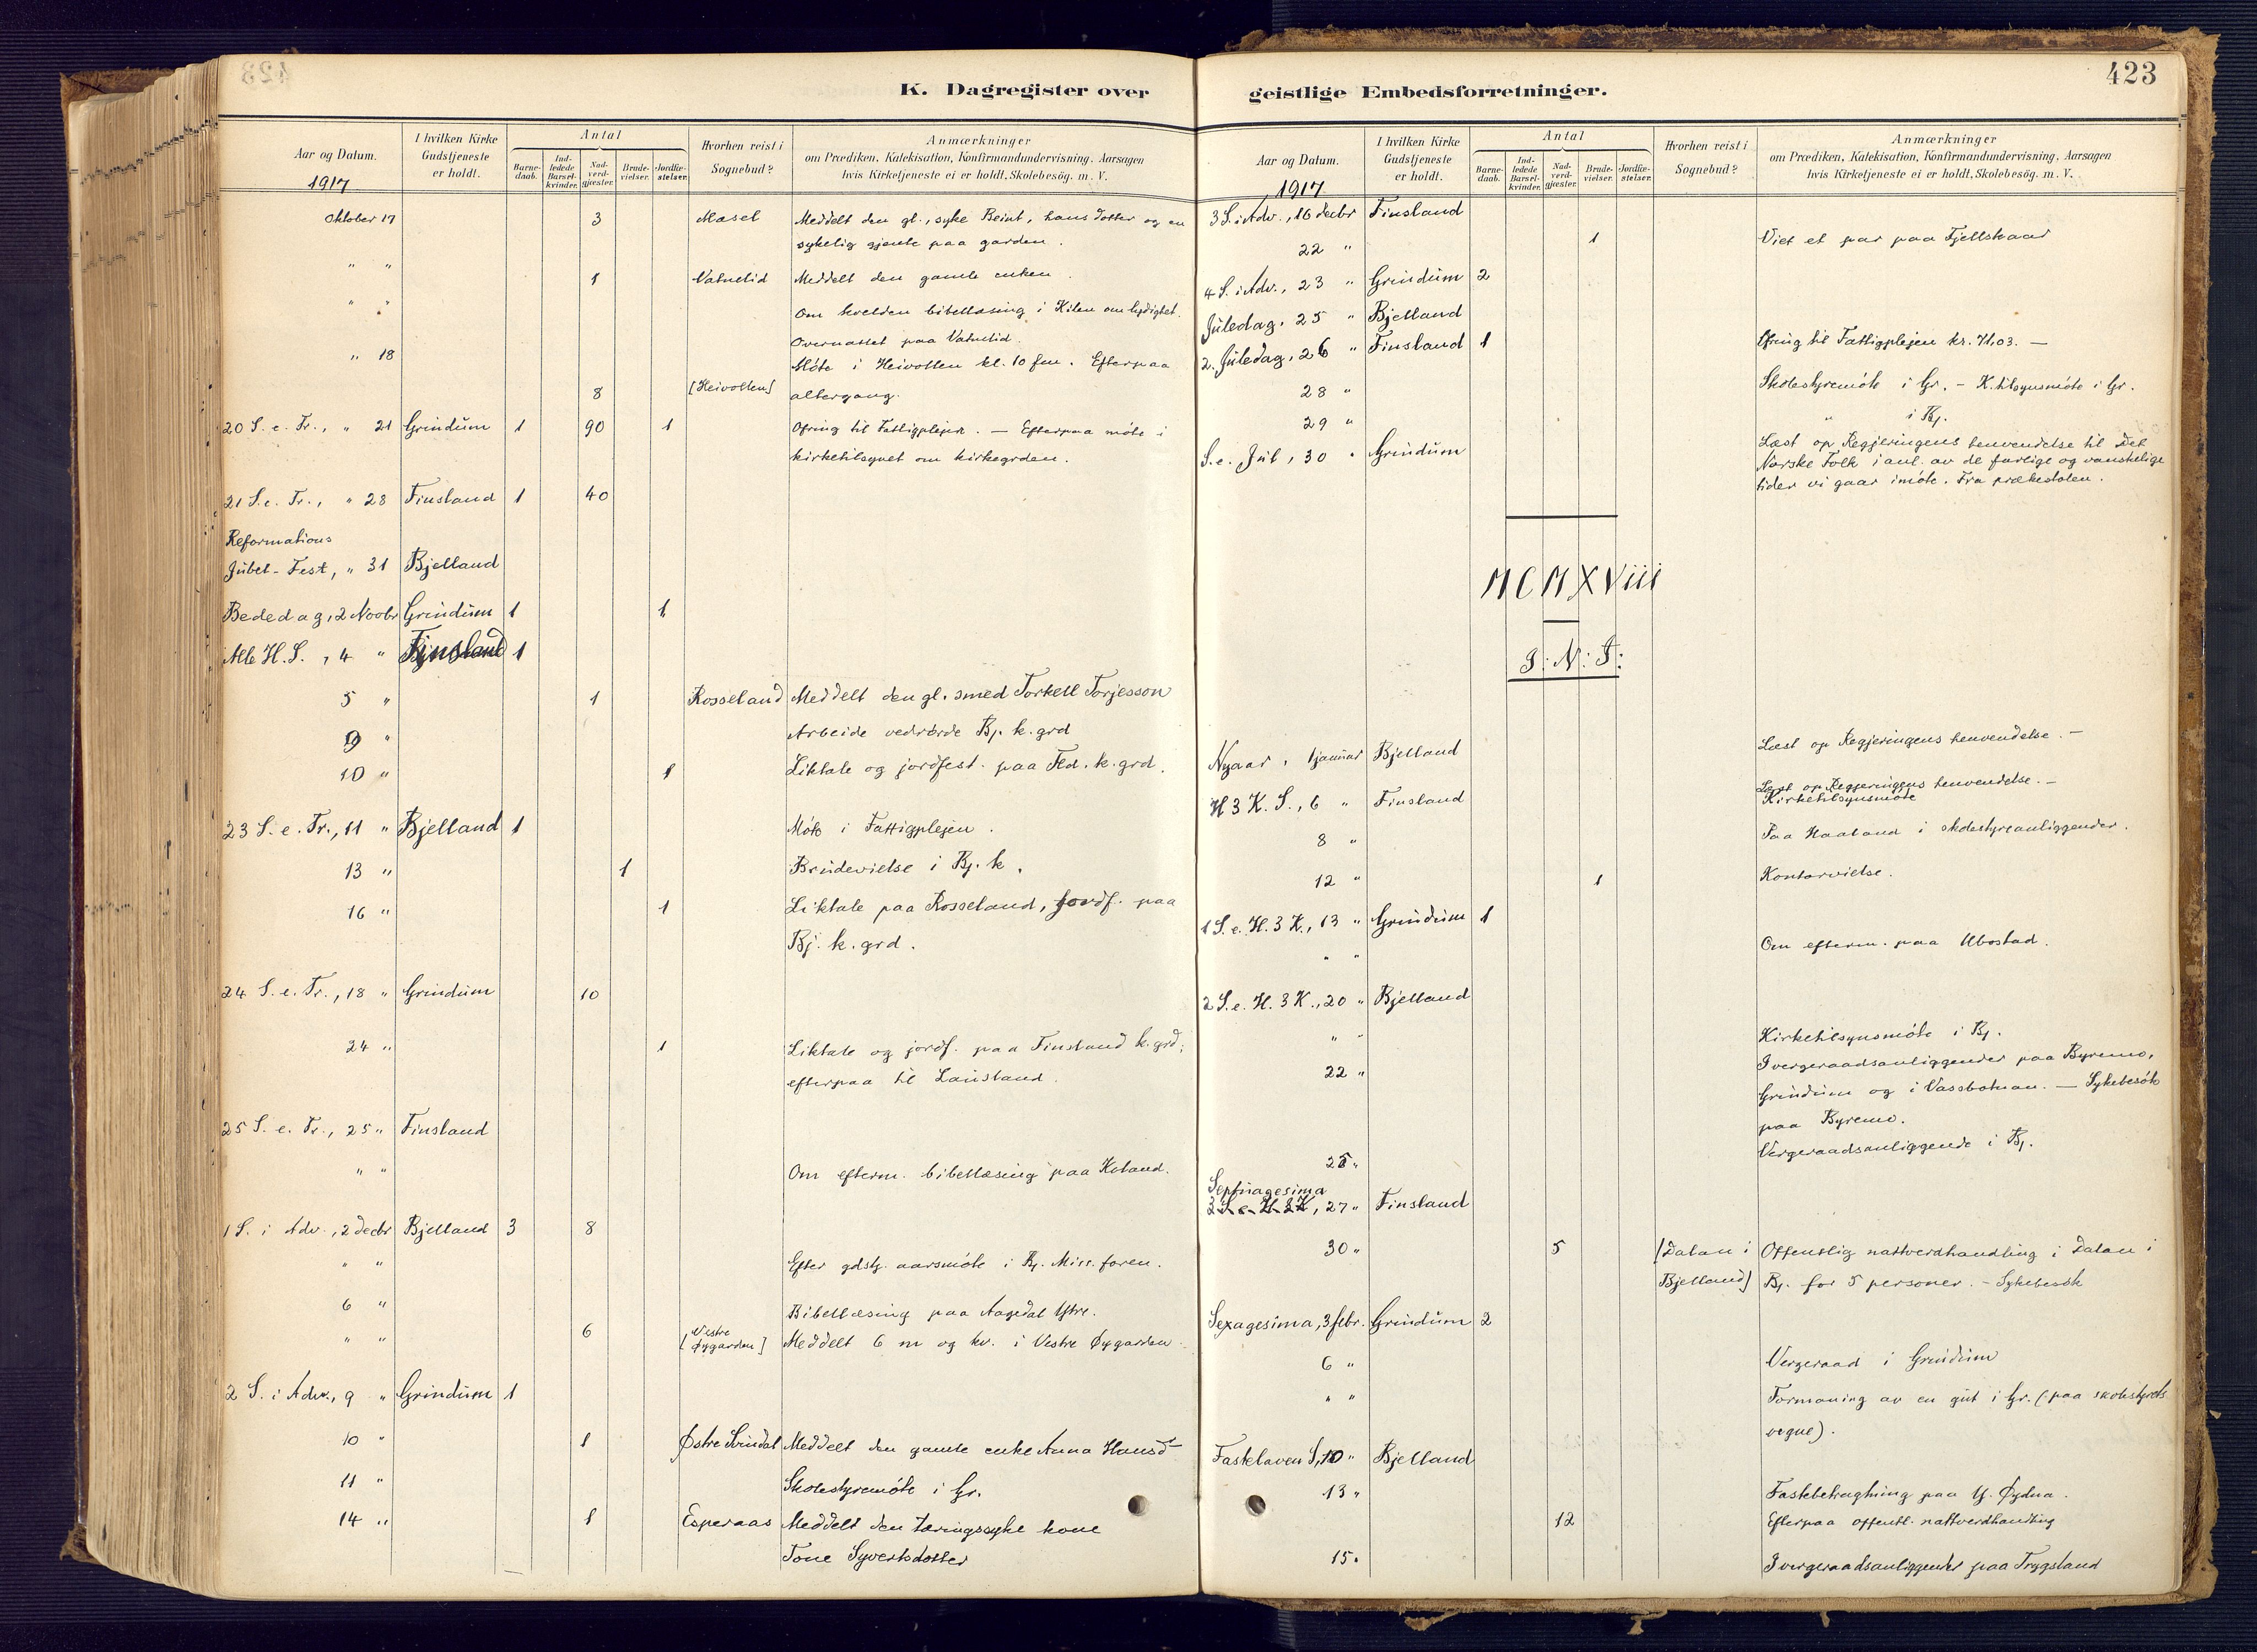 423
K. Dagregister over
geistlige Embedsforretninger.
Aar og Datum.
1917
I hvilken Kirke Gudstjeneste er holdt.
Antal
Barne-daab.
Ind-ledede Barsel-kvinder.
Nad-verd-gjæster.
Brude-vielser.
Jordfæ-stelser.
Hvorhen reist i Sognebud?
Anmærkninger
om Prædiken, Katekisation, Konfirmandundervisning, Aarsagen
hvis Kirketjeneste ei er holdt, Skolebesög. m. V.
Oktober 17 3 Mæsel Meddelt den gl., syke Beint, hans dotter og en
sykelig gjente paa garden.
" " 1 Vatnelid Meddelt den gamle enken.
" " Om kvelden bibellæsing i Kilen om lydighet.
Overnattet paa Vatnelid.
" 18 Möte i Heivollen kl. 10 fm. Efterpaa
8 [Heivollen] altergang.
20 S. e. Tr., " 21 Grindum 1 90 1 Ofring til Fattigplejen. — Efterpaa möte i
kirketilsynet om kirkegrden.
21 S. e. Tr., " 28 Finsland 1 40
Reformations
Jubel-Fest, " 31 Bjelland
Bededag, 2 Novbr Grindum 1 1
Alle H. S., 4 " Finsland 1
5 " 1 Rosseland Meddelt den gl. smed Torkell Torjesson
9 " Arbeide vedrörde Bj. k. grd
10 " 1 Liktale og jordfest. paa Fld. k. grd.
23 S. e. Tr., 11 " Bjelland 1 Möte i Fattigplejen.
13 " 1 Brudevielse i Bj. k.
16 " 1 Liktale paa Rosseland, jordf. paa
Bj. k. grd.
24 S. e. Tr., 18 " Grindum 10
24 " 1 Liktale og jordf. paa Finsland k. grd;
efterpaa til Lausland.
25 S. e. Tr., 25 " Finsland
" " Om efterm. bibellæsing paa Koland.
1 S. i Adv., 2 decbr Bjelland 3 8
" " Efter gdstj. aarsmöte i Bj. Miss. foren.
6 " Bibellæsing paa Aagedal Ystre.
" " 6 [Vestre Øygarden] Meddelt 6 m og kv. i Vestre Øygarden
2 S. i Adv., 9 " Grindum 1
10 " 1 Østre Svindal Meddelt den gamle enke Anna Hansd
11 " Skolestyremöte i Gr.
14 " 1 Esperaas Meddelt den tæringssyke kone
Tone Syvertsdotter
Aar og Datum.
1917
I hvilken Kirke Gudstjeneste er holdt.
Antal
Barne-daab.
Ind-ledede Barsel-kvinder.
Nad-verd-gjæster.
Brude-vielser.
Jordfæ-stelser.
Hvorhen reist i Sognebud?
Anmærkninger
om Prædiken, Katekisation, Konfirmandundervisning, Aarsagen
hvis Kirketjeneste ei er holdt, Skolebesög. m. V.
3 S. i Adv., 16 decbr Finsland
22 " 1 Viet et par paa Fjellskaar
4 S. i Adv., 23 " Grindum 2
Juledag, 25 " Bjelland
2. Juledag, 26 " Finsland 1 Ofring til Fattigplejen kr. 71,03. —
28 " Skolestyremöte i Gr. — K.tilsynsmöte i Gr.
29 " " i Bj.
S. e. Jul, 30 " Grindum Læst op Regjeringens henvendelse til Det
Norske Folk i anl. av de farlige og vanskelige
tider vi gaar imöte. Fra prækestolen.
MCMXViii
J: N: J:
Nyaar, 1 januar Bjelland Læst op Regjeringens henvendelse. —
H 3 K. S., 6 " Finsland Læst op Regjeringens henvendelse. —
Kirketilsynsmöte
8 " Paa Haaland i skolestyreanliggender.
12 " 1 Kontorvielse.
1 S. e. H. 3 K., 13 " Grindum 1
" " Om efterm. paa Ubostad.
2 S. e. H. 3 K., 20 " Bjelland
" " Kirketilsynsmöte i Bj.
22 " I vergeraadsanliggender paa Byremo,
Grindum og i Vassbotnan. — Sykebesök
paa Byremo.
25 " Vergeraadsanliggende i Bj.
Septuagesima
3 S. e. H 3 K, 27 " Finsland
30 " 5 [Dalan i Bjelland] Offentlig nattverdhandling i Dalan i
Bj. for 5 personer. — Sykebesök
Sexagesima, 3 febr. Grindum 2
6 " Vergeraad i Grindum
" " Formaning av en gut i Gr. (paa skolestyrets
vegne).
Fastelaven S, 10 " Bjelland
13 " Fastebetragtning paa Y. Øydna.
12 Efterpaa offentl. nattverdhandling
15. I vergeraadsanliggender paa Trygsland